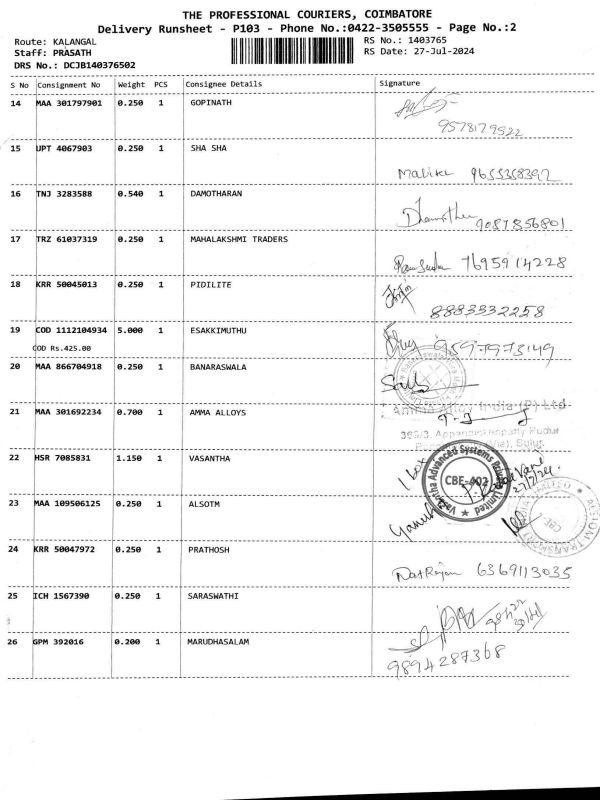 THE PROFESSIONAL COURIERS, COIMBATORE
Delivery Runsheet - P103 - Phone No.:0422-3505555 - Page No.:2
Route: KALANGAL
RS No.: 1403765
Staff: PRASATH
RS Date: 27-Jul-2024
DRS No.: DCJB140376502
S No Consignment No Weight PCS Consignee Details Signature
14 MAA 301797901 0.250 1 GOPINATH
9578179522
15 UPT 4067903 0.250 1 SHA SHA
9655358392
16 TNJ 3283588 0.540 1 DAMOTHARAN
9087856801
17 TRZ 61037319 0.250 1 MAHALAKSHMI TRADERS
7695914228
18 KRR 50045013 0.250 1 PIDILITE
8883332258
19 COD 1112104934 5.000 1 ESAKKIMUTHU
9597973149
COD Rs.425.00
20 MAA 866704918 0.250 1 BANARASWALA
21 MAA 301692234 0.700 1 AMMA ALLOYS
Amma Alloy India (P) Ltd
22 HSR 7085831 1.150 1 VASANTHA
1 box
Vasantha Advanced Systems Private Limited
CBE-402
27/7/24.
23 MAA 109506125 0.250 1 ALSOTM
Ganesh
24 KRR 50047972 0.250 1 PRATHOSH
Natrajan 6369113035
25 ICH 1567390 0.250 1 SARASWATHI
26 GPM 392016 0.200 1 MARUDHASALAM
9894287368